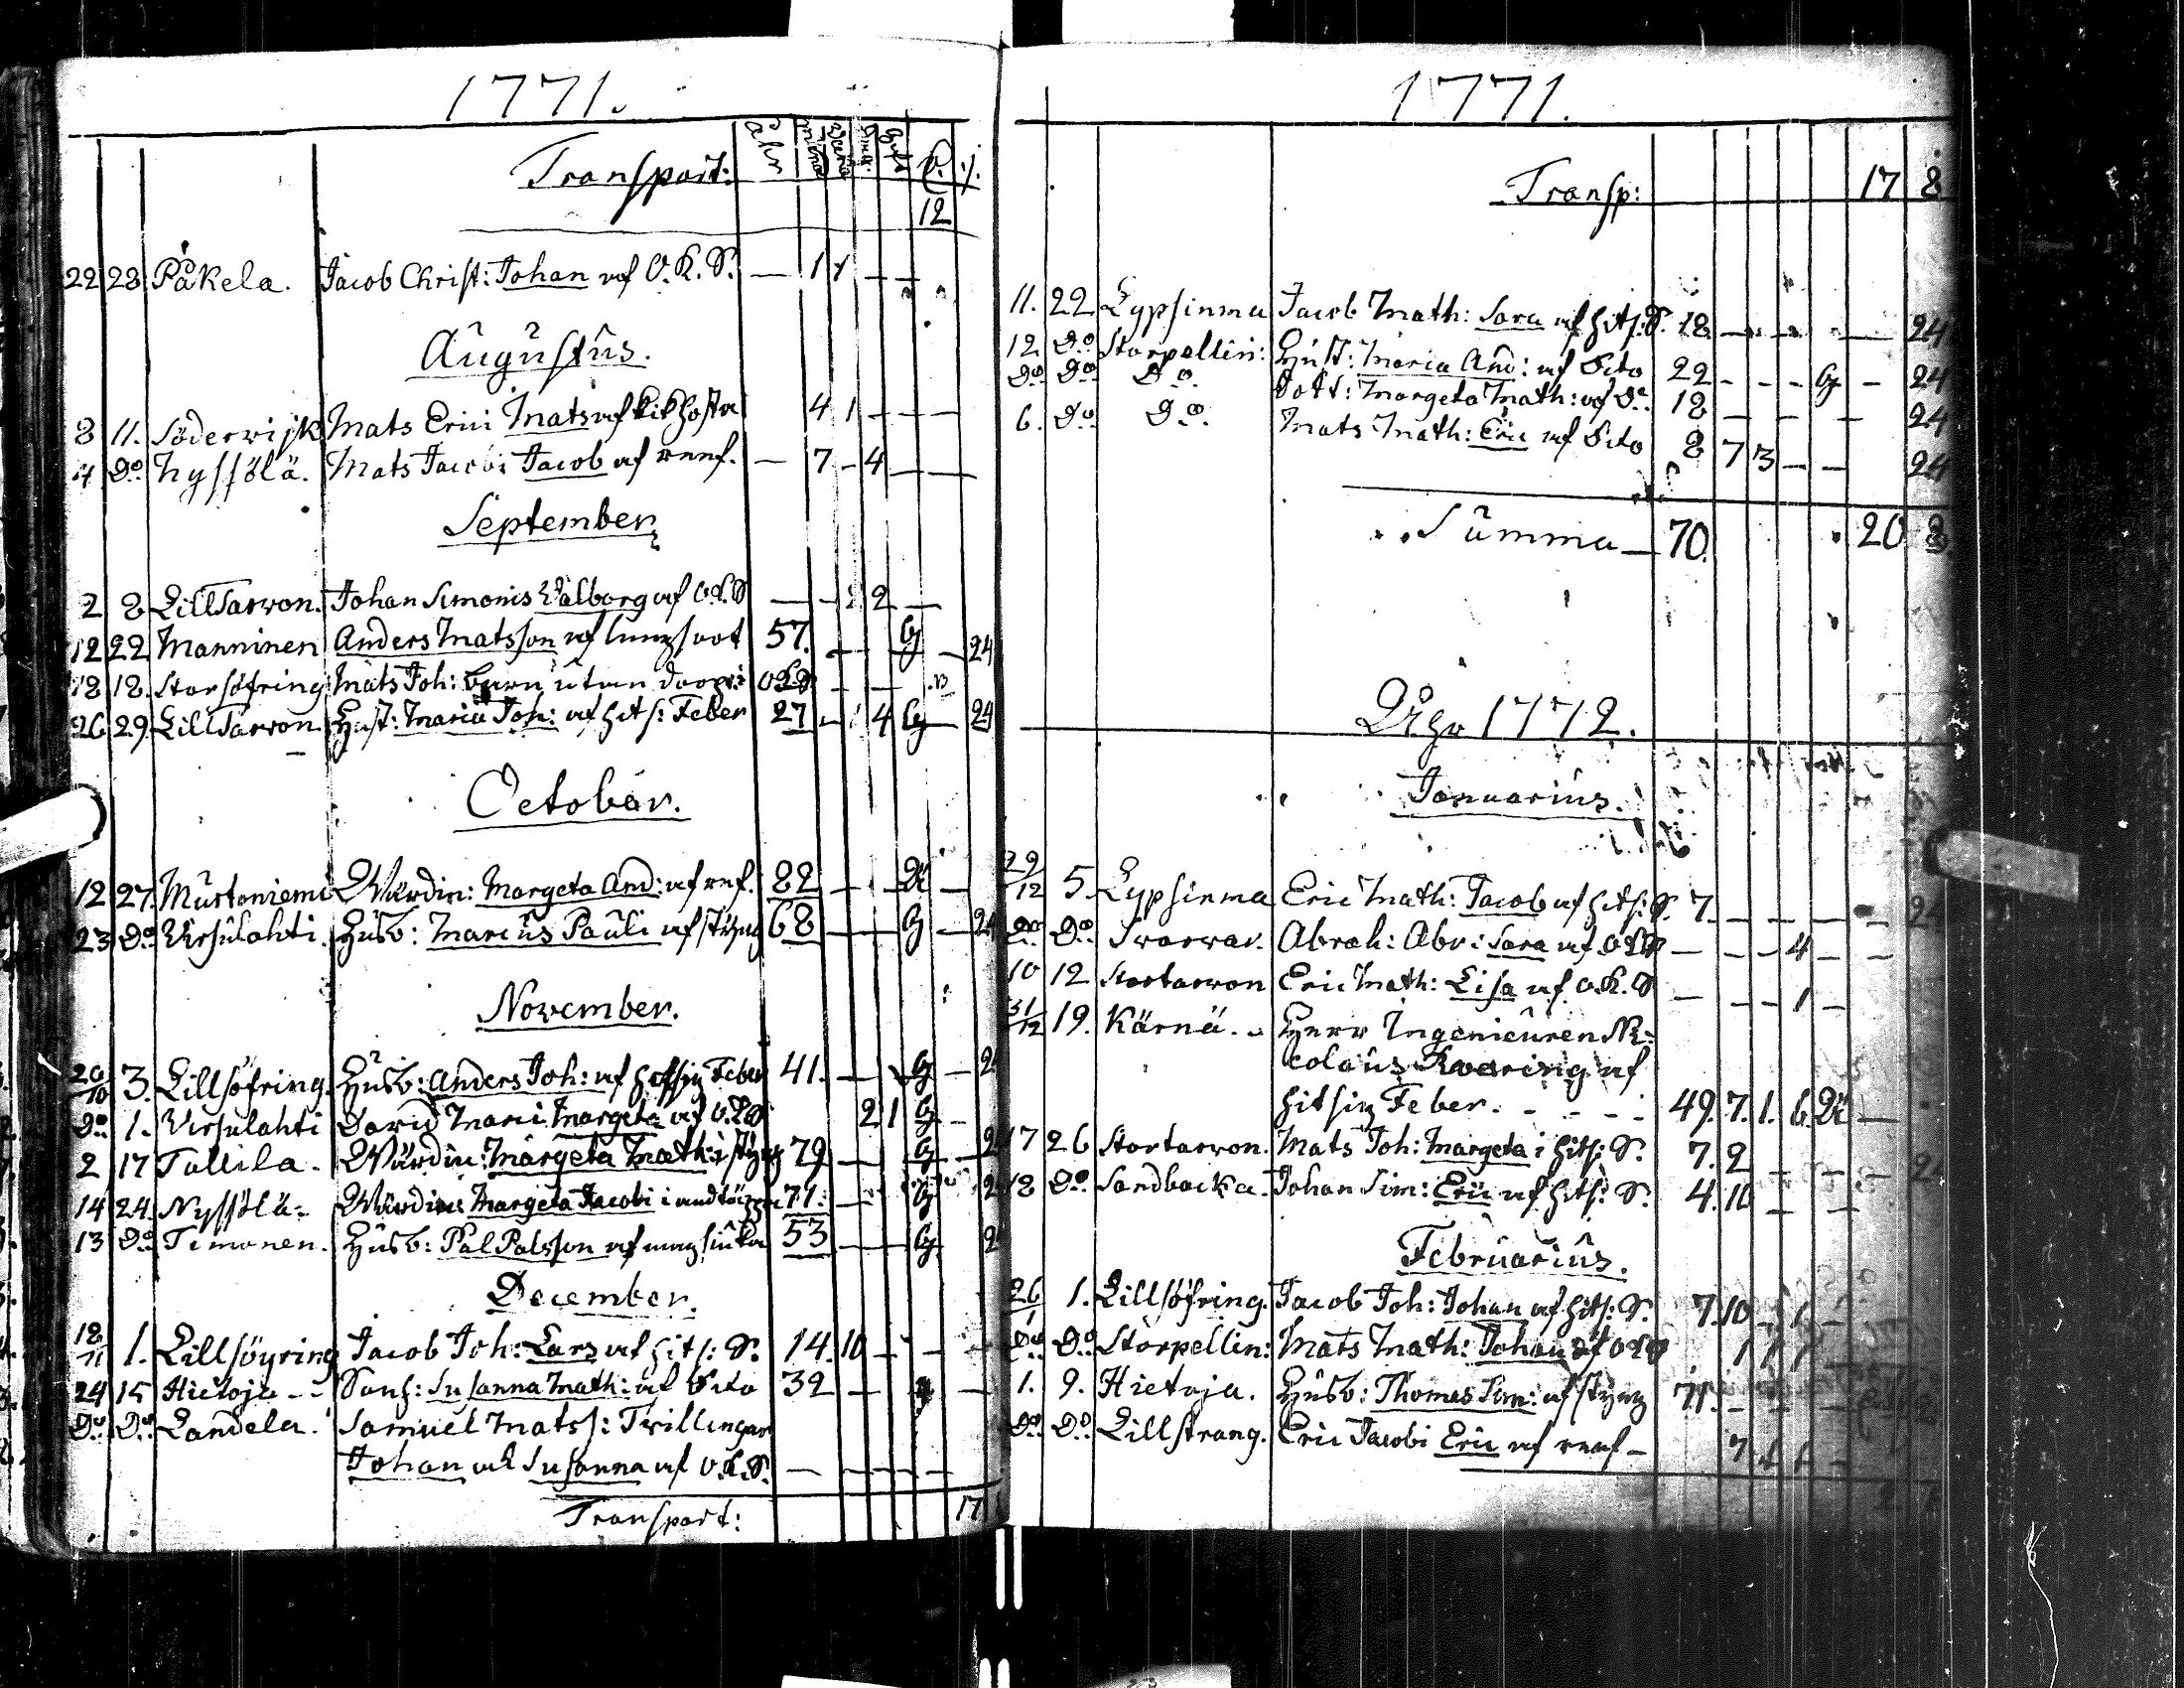 1771.
Transport:
12
22 28 Påkela. Jacob Christ: Johan af O.K.S. — 1 1 — —
Augustus.
8 11. Söderwijk Mats Erici Mats af kikhosta 4 1 — — —
4 Do Nyssölä. Mats Jacobi Jacob af reef. — 7 - 4 — —
September
2 8 LillTarvon. Johan Simonis Walborg af O.K.S — - 2 —
12 22 Manninen Anders Matsson af lungsoot 57. — G — 24
18 18. Storsöfring Mats Joh: barn utan doop: O.K.S. — —
26 29. LillTarvon. Hust: Maria Joh: af hits: Feber 27 - 4 G — 24
October.
12 27. Murtoniemi Wärdin: Margeta And: af ref. 82 — — —
23 Do Ursulahti. Husb: Marcus Pauli af styng 68 — — G — 24
November.
20/10 3. Lillsöfring. Husb: Anders Joh: af hitsig Feber 41. — G —
Do 1. Ursulahti David Marci Margeta af O.K.S 2 1 G -
2 17 Tallila. Wärdin: Margeta Math: i styng 79 — G —
14 24. Nyssölä- Wärdin: Margeta Jacobi i 71. — G
13 Do Timonen. Husb: Pål Pålsson af magsiuka 53 — G
December.
18/11 1. Lillsöyring Jacob Joh: Lars af hits: S. 14 10 — - - -
24 15 Hietoja -- Susanna Math: af Dito 32 — —
Do Do Landela. Samuel Mats: Twillingar
Johan ok Susanna af O.K.S. — — — —
Transport: 17
1771.
Transp: 17 8
11. 22 Lypsinma Jacob Math: Sara af hits: S. 18 — - - - — 24
12 Do Storpellin: Hust: Maria And: af Dito 22 - - - G - 24
Do Do Do. Dott: Margeta Math: af Do. 18 — — — — 24
6. Do Do. Mats Math: Eric af Dito 8 7 3 — — 24
Summa — 70. 20 8
Åhr 1772.
Januarius.
29/12 5. Lypsinma Eric Math: Jacob af hits: S. 7. — — — — — 24
Do Do. Swarvar. Abrah: Abr: Sara af O.K.S — — - 4 — -
10 12 Stortarvon Eric Math: Lisa af O.K.S — — - 1 -
31/12 19. Kärnä. - Herr Ingenieuren Ni-
colaus af
hitsig Feber. - - - - 49. 7. 1. 6. —
17 26 Stortarvon. Mats Joh: Margeta i hits: S. 7. 2 - — — - 24
18 Do Sandbacka. Johan Sim: Eric af hits: S. 4. 10 — —
Februarius.
26/1 1. Lillsöfring. Jacob Joh: Johan af hits: S. 7. 10 - 1 -
Do Do Storpellin: Mats Math: Johan af O.K.S 1 1 1
1. 9. Hietoja. Husb: Thomas Sim: af styng 71. - - -
Do Do Lillstrang. Eric Jacobi Eric af reef - 7